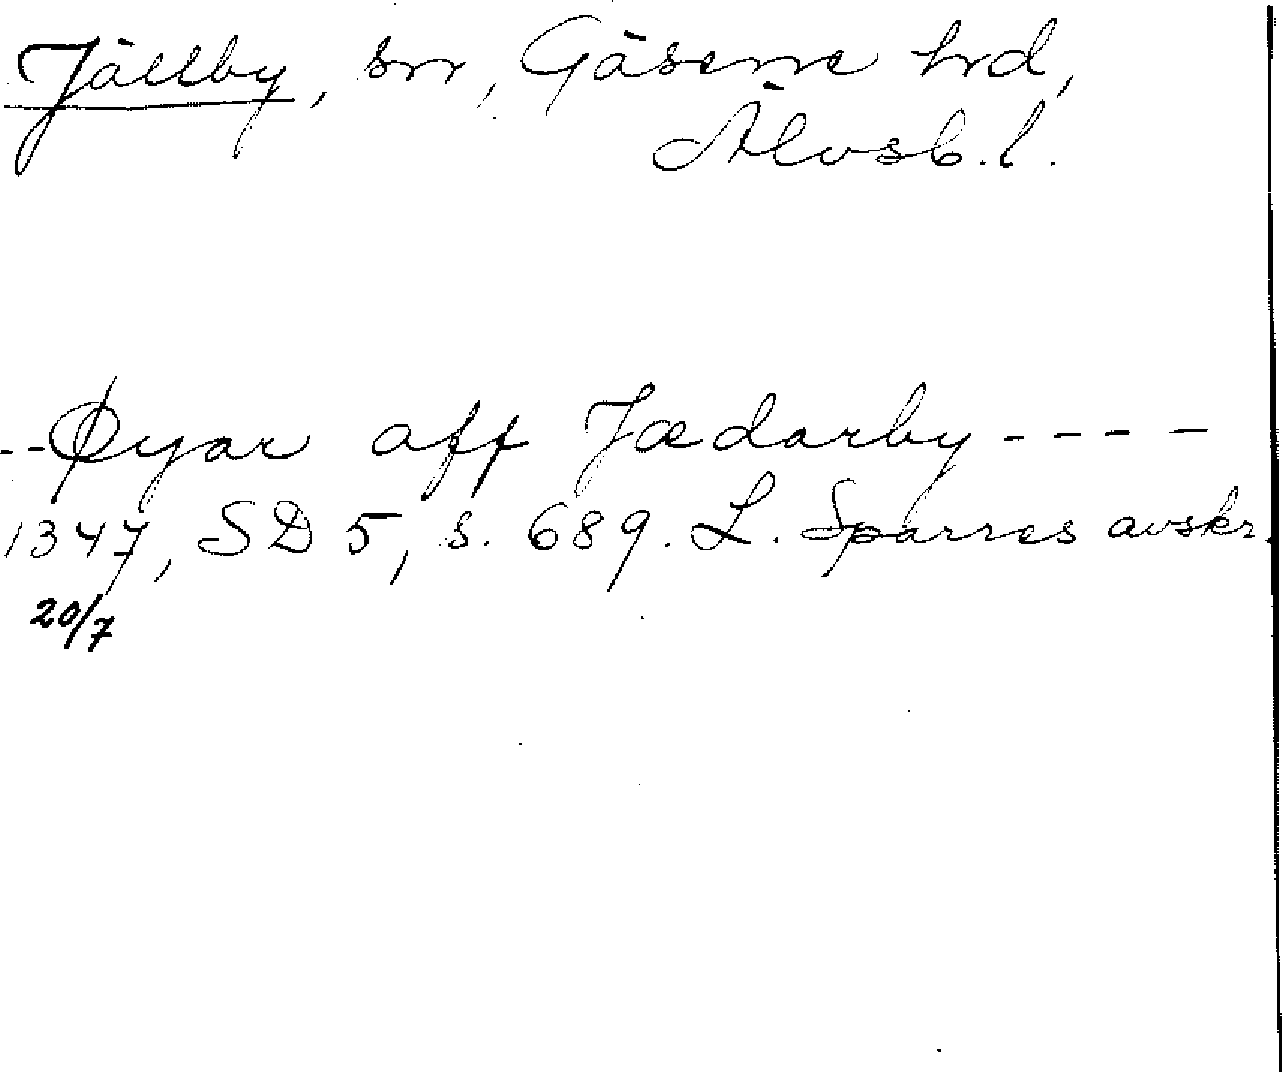 Jällby, sn, Gäsene hrd,
Älvsb. l.
-- Øyar aff Jædarby ----
1347, SD 5, s. 689. L. Sparres avskr.
20/7